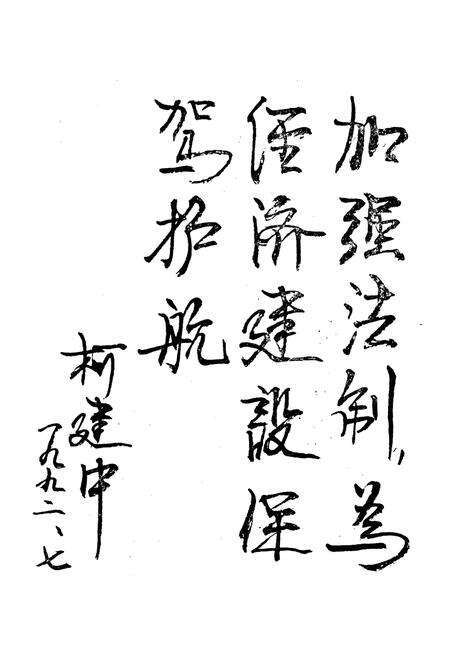 加强法制，为
经济建設保
驾护航
柯建中
一九九二、七